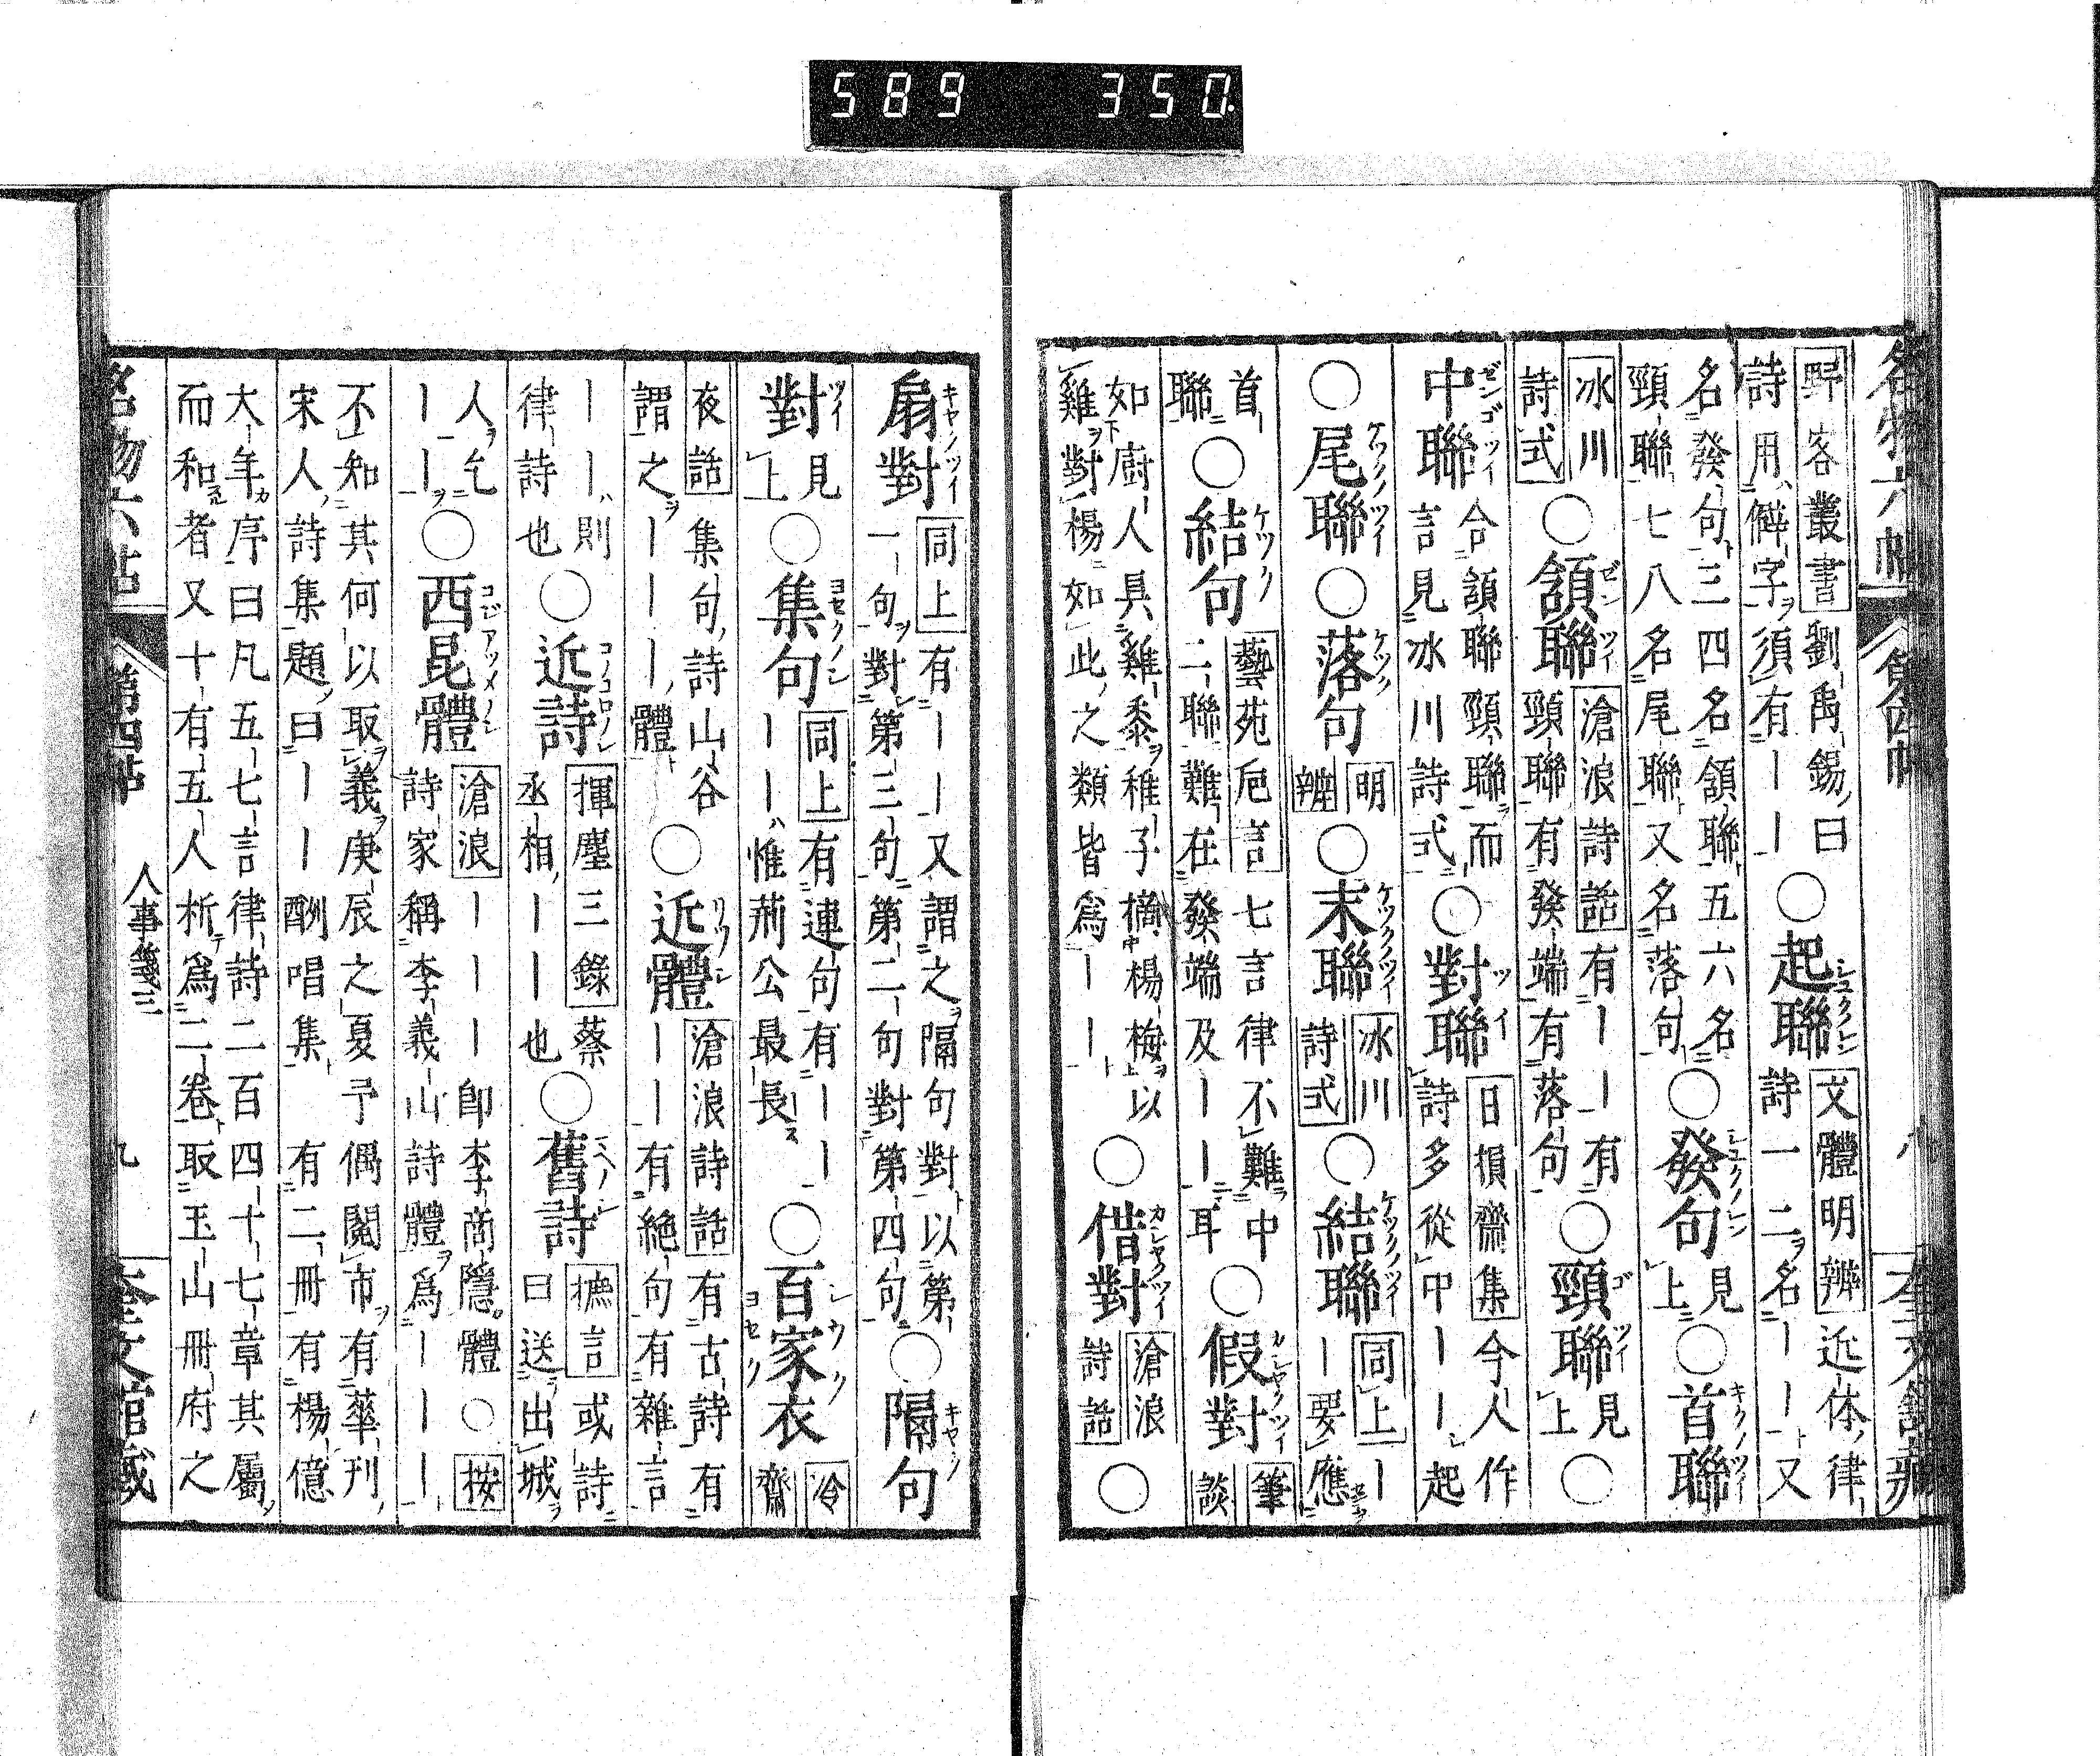 589 350.
名物六帖 第四帖 八 奎文館藏
野客叢書劉禹錫曰
詩用僻字須有｜｜○起聯シユクレン文體明辨近体律
詩一二名｜｜又
名發句三四名頷聯五六名
頸聯七八名尾聯又名落句○發句見上○首聯
冰川
詩式○頷聯ゼンツイ滄浪詩話有｜｜有
頸聯有發端有落句○頸聯ゴツイ見上○
中聯ゼンゴツイ合頷聯頸聯而
言見冰川詩式○對聯ツイ日損齋集今人作
詩多從中｜｜起
○尾聯○落句明
辨○末聯冰川
詩式○結聯同上｜
｜要應
首
聯○結句藝苑巵言七言律不難中
二聯難在發端及｜｜耳○假對筆
談
如廚人具雞黍稚子摘楊梅以
雞對楊如此之類皆爲｜｜○借對滄浪
詩話○
扇對同上有｜｜又謂之隔句對以第
一句對第三句第二句對第四句○隔句
對見
上○集句同上有連句有｜｜
｜｜惟荊公最長○百家衣冷
齋
夜話集句詩山谷
謂之｜｜｜體○近體滄浪詩話有古詩有
｜｜有絕句有雜言
｜｜則
律詩也○近詩揮麈三錄蔡
丞相｜｜也○舊詩摭言或詩
曰送出城
人乞
｜｜○西昆體滄浪｜｜｜卽李商隱體○按
詩家稱李義山詩體爲｜｜｜
不知其何以取義庚辰之夏予偶閱市有華刊
宋人詩集題曰｜｜酬唱集 有二冊有楊億
大年序曰凡五七言律詩二百四十七章其屬
而和者又十有五人析爲二卷取玉山冊府之
名物六帖 第四帖 人事箋三 九 奎文館藏